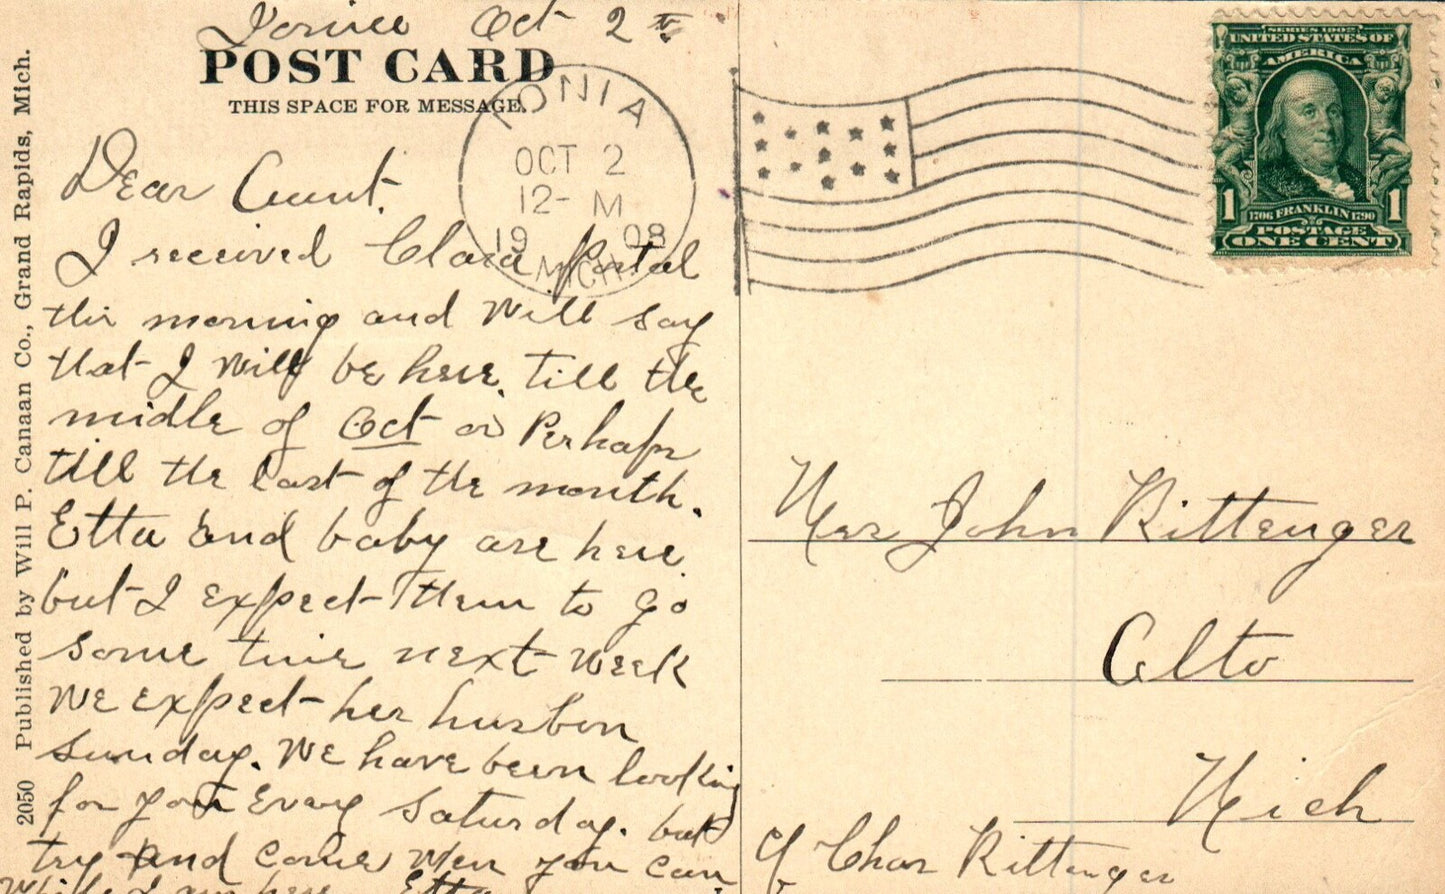 Ionia Oct 2nd
POST CARD
THIS SPACE FOR MESSAGE.
IONIA
OCT 2
12- M
1908
MICH.
Dear Aunt.
I received Clara Postal
this morning and will say
that I will be here till the
midle of Oct or Perhaps
till the last of the month.
Etta and baby are here
but I expect them to go
some time next week
we expect her husben
Sunday. We have been looking
for you every Saturday. but
try and come when you can
while I am here. Etta
2050 Published by Will P. Canaan Co., Grand Rapids, Mich.
SERIES 1902
UNITED STATES OF
AMERICA
1 1
1706 FRANKLIN 1790
POSTAGE
ONE CENT
Mrs John Rittenger
Alto
Mich
c/o Chas Rittenger